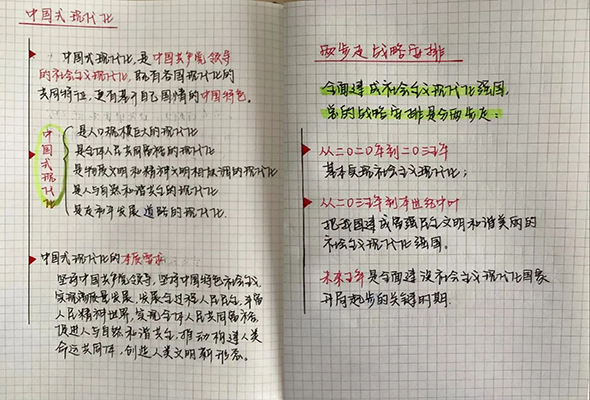 中国式现代化
中国式现代化,是中国共产党领导
的社会主义现代化,既有各国现代化的
共同特征,更有基于自己国情的中国特色。
中国式现代化
是人口规模巨大的现代化
是全体人民共同富裕的现代化
是物质文明和精神文明相协调的现代化
是人与自然和谐共生的现代化
是走和平发展道路的现代化.
中国式现代化的本质要求
坚持中国共产党领导,坚持中国特色社会主义,
实现高质量发展,发展全过程人民民主,丰富
人民精神世界,实现全体人民共同富裕,
促进人与自然和谐共生,推动构建人类
命运共同体,创造人类文明新形态。
两步走战略安排
全面建成社会主义现代化强国,
总的战略安排是分两步走:
从二〇二〇年到二〇三五年
基本实现社会主义现代化;
从二〇三五年到本世纪中叶
把我国建成富强民主文明和谐美丽的
社会主义现代化强国。
未来五年是全面建设社会主义现代化国家
开局起步的关键时期.